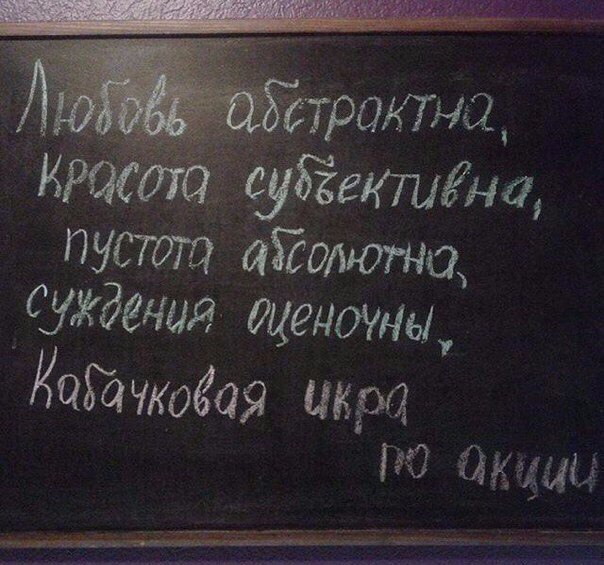 Любовь абстрактна,
красота субъективна,
пустота абсолютна,
суждения оценочны,
Кабачковая икра
по акции